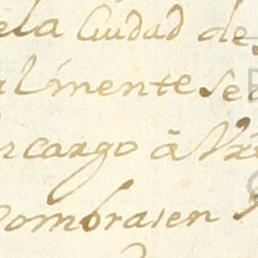 ela Ciudad de
almente se
ncargo ā
nombrasen